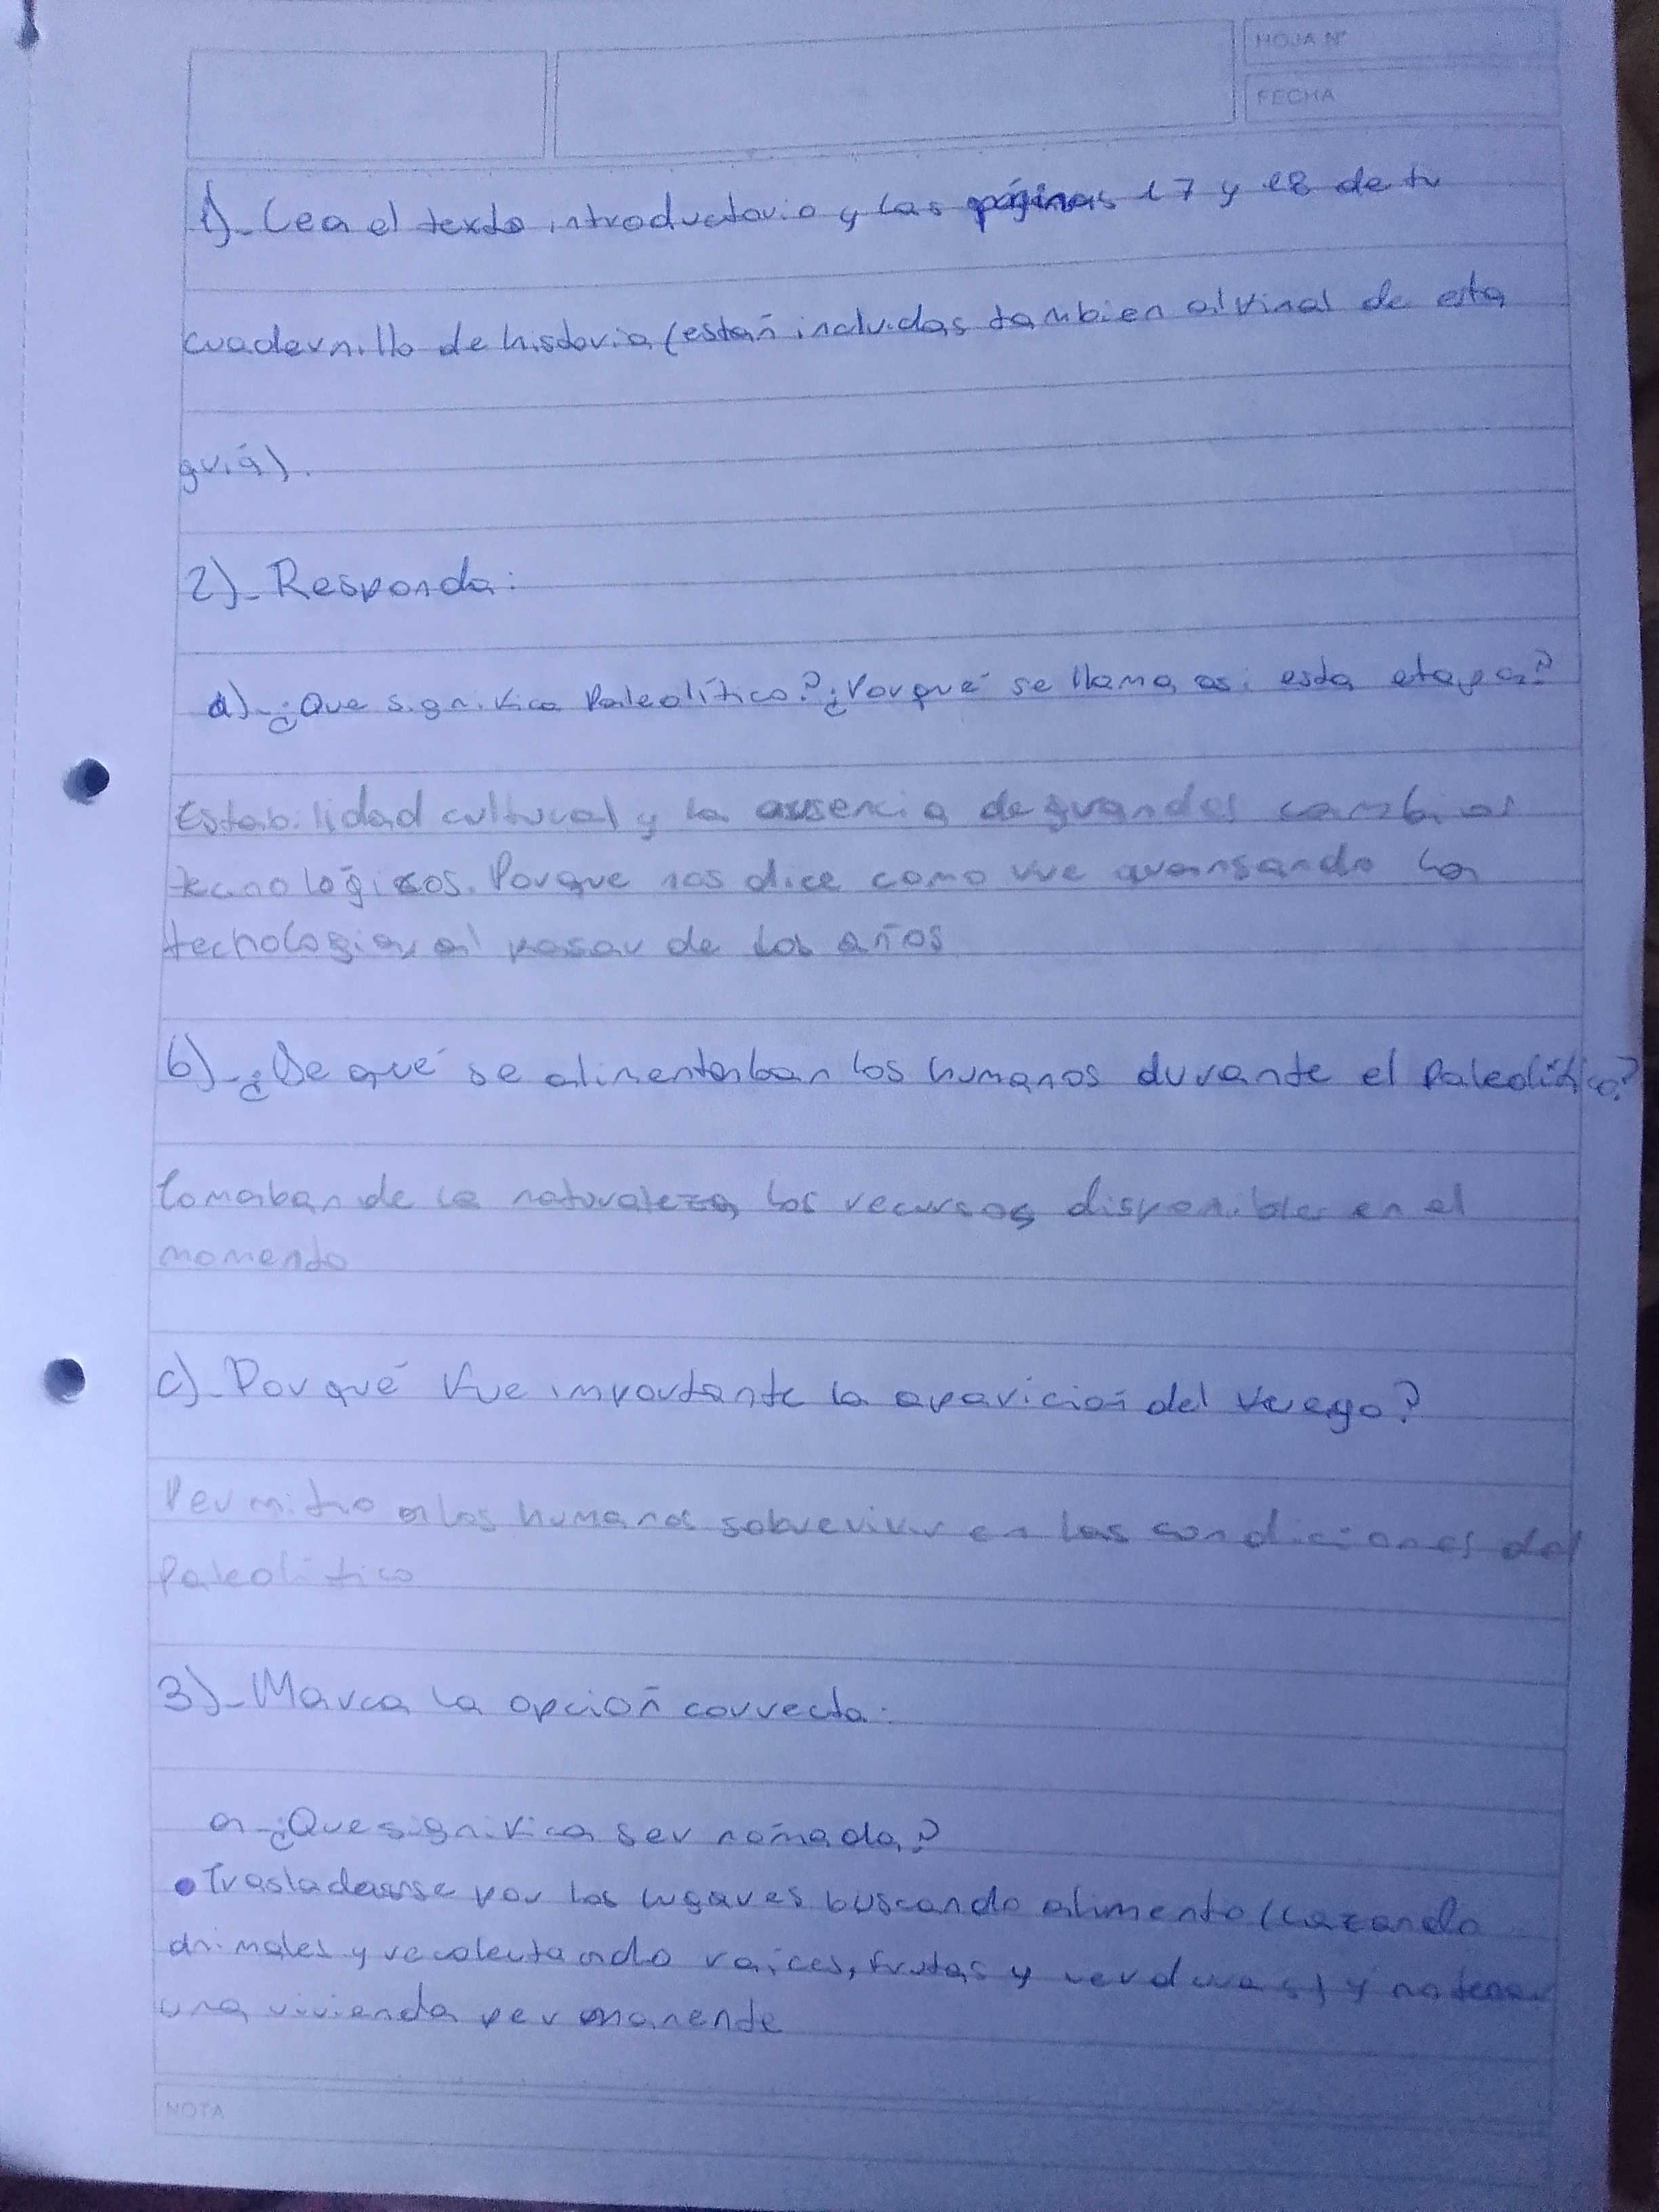 HOJA N°
FECHA
1)_ Lea el texto introductorio y las páginas 17 y 18 de tu
cuadernillo de historia (están incluidas tambien al final de esta
guiá).
2)_ Responda:
a)_ ¿Que significa Paleolítico? ¿Porqué se llama asi esta etapa?
Estabilidad cultural y la ausencia de grandes cambios
tecnológicos. Porque nos dice como fue avansando la
tecnologia, al pasar de los años
b)_ ¿De qué se alimentaban los humanos durante el Paleolítico?
Tomaban de la naturaleza los recursos disponibles en el
momento
c)_ Por qué fue importante la aparición del fuego?
Permitio a los humanos sobrevivir en las condiciones del
Paleolitico
3)_ Marca la opción correcta:
a_ ¿Que significa ser nómada?
• Trasladarse por los lugares buscando alimento (cazando
animales y recolectando raices, frutas y verduras) y no tener
una vivienda permanente
NOTA